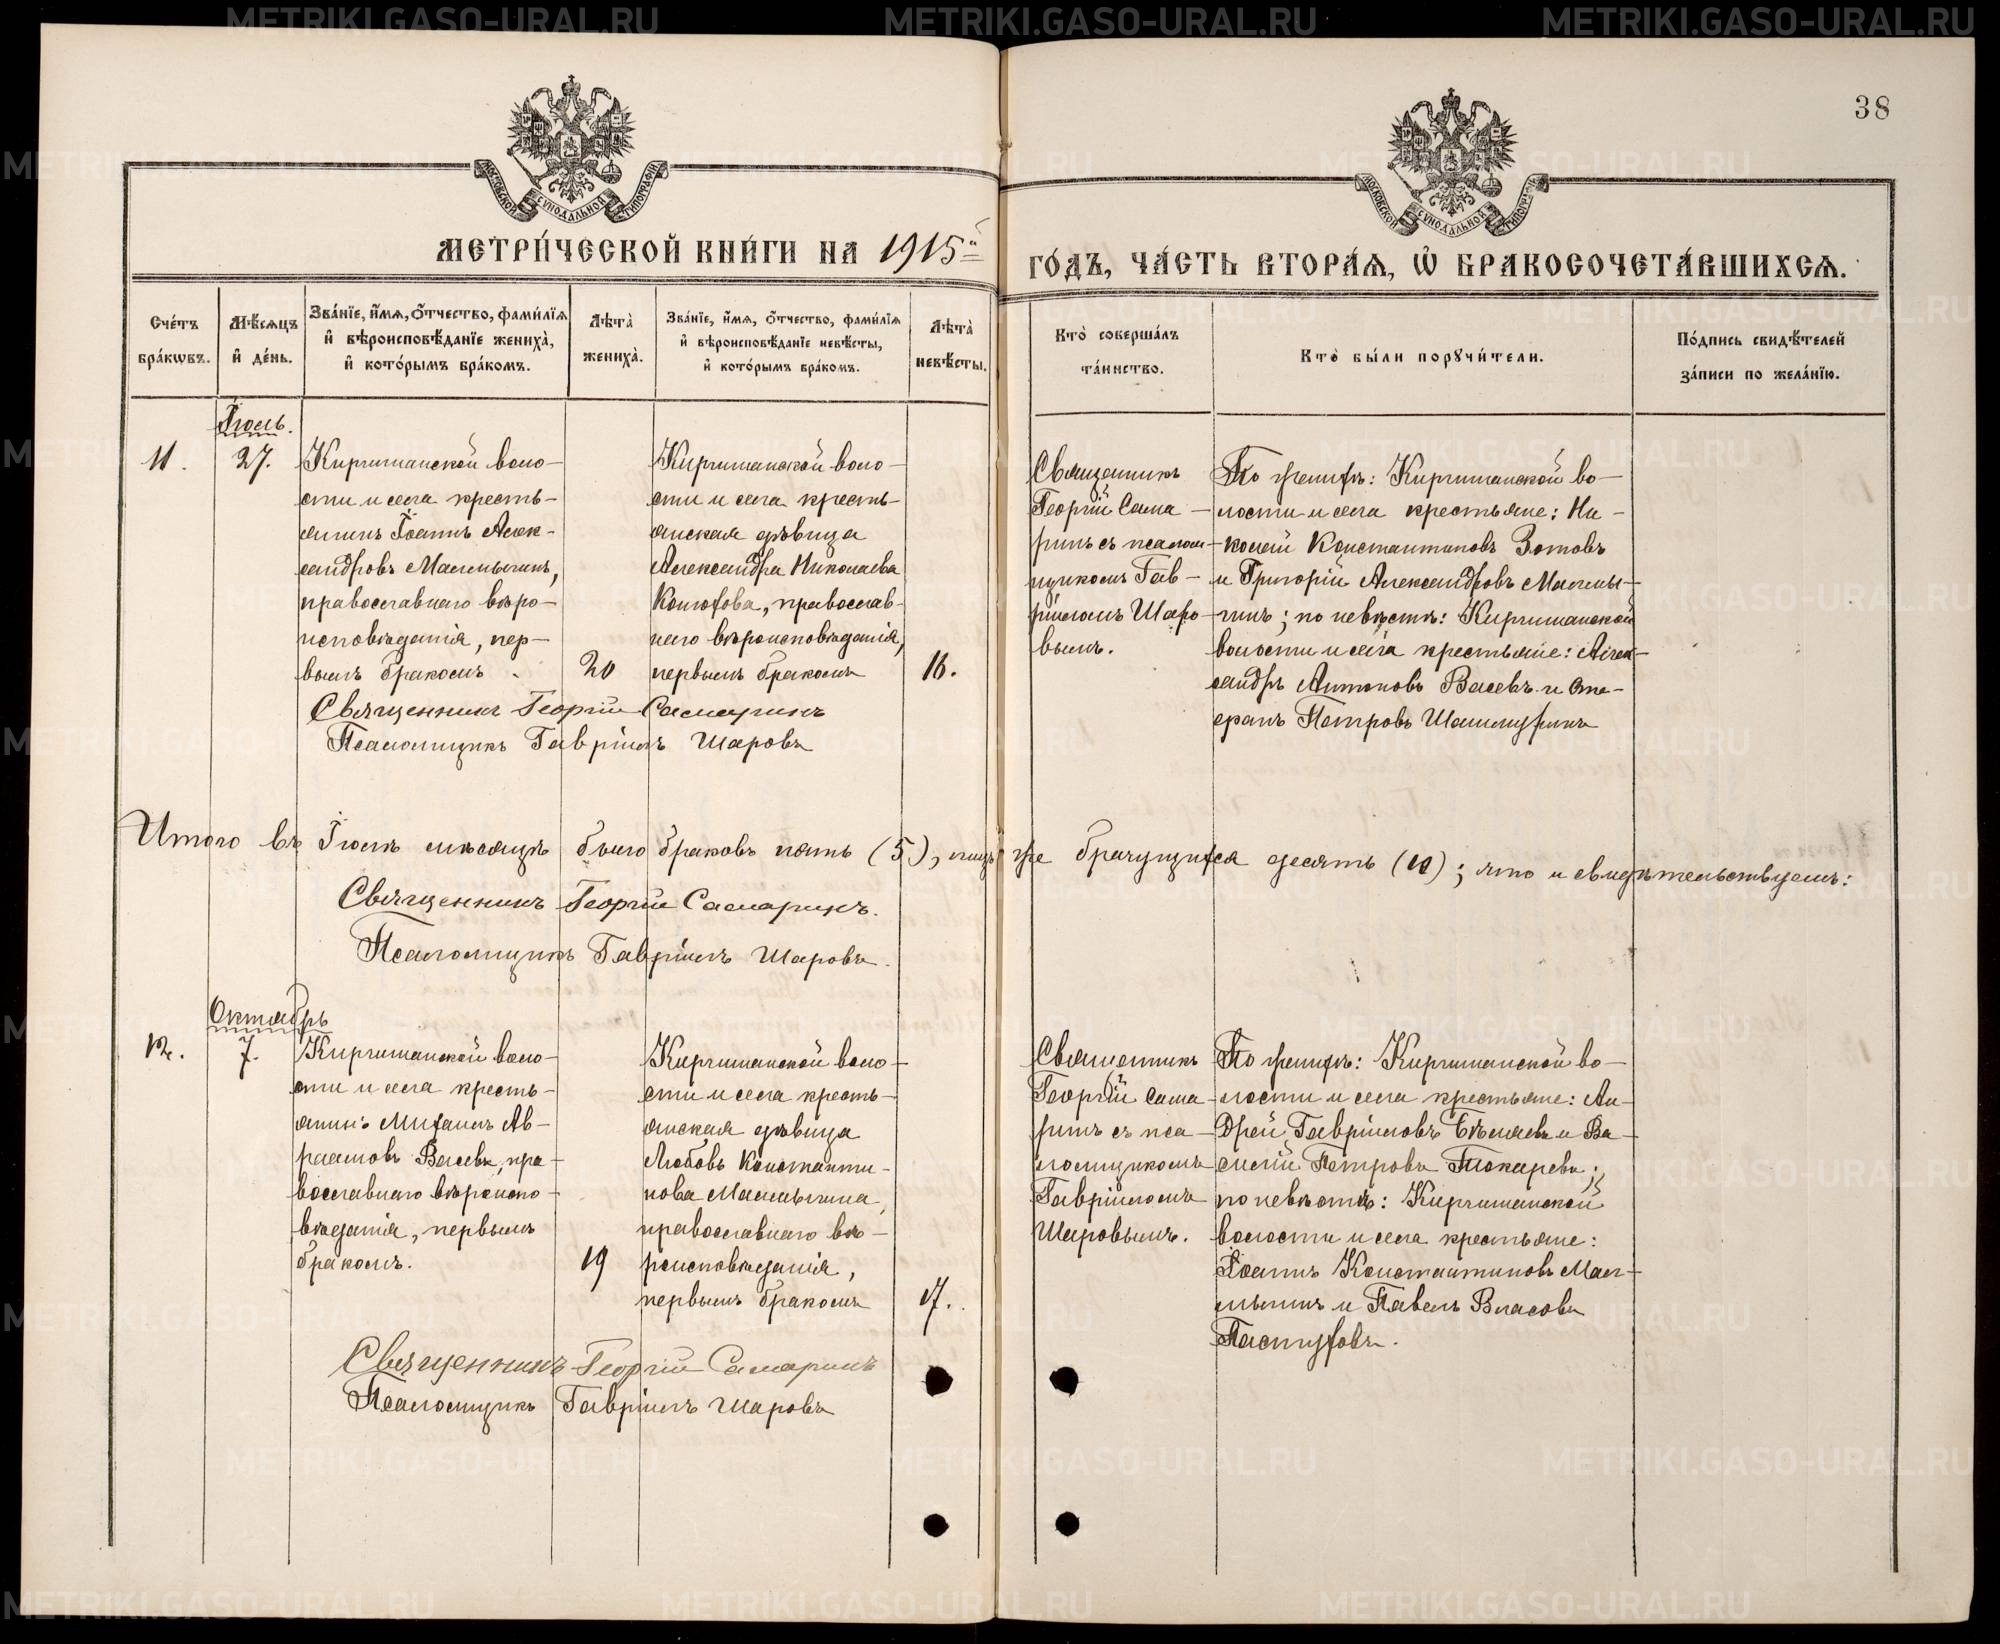 38
МОСКОВСКОЙ СѴНОДАЛЬНОЙ ТИПОГРАФІИ
МОСКОВСКОЙ СѴНОДАЛЬНОЙ ТИПОГРАФІИ
МЕТРИ́ЧЕСКОЙ КНИ́ГИ НА 1915й
ГО́ДЪ, ЧА́СТЬ ВТОРА́Я, Ѽ БРАКОСОЧЕТА́ВШИХСЯ.
Сче́тъ бра́кѡвъ.
Мѣ́сяцъ и҆ де́нь.
Зва́нїе, и҆́мя, ѻ҆́тчество, фами́лїя и҆ вѣроисповѣ́данїе жениха̀, и҆ кото́рымъ бра́комъ.
Лѣта̀ жениха̀.
Зва́нїе, и҆́мя, ѻ҆́тчество, фами́лїя и҆ вѣроисповѣ́данїе невѣ́сты, и҆ кото́рымъ бра́комъ.
Лѣта̀ невѣ́сты.
Кто̀ соверша́лъ та́инство.
Кто̀ бы́ли порꙋчи́тели.
По́дпись свидѣ́телей за́писи по жела́нїю.
Іюль.
11.
27.
Киргишанской воло-
сти и села кресть-
янинъ Іоаннъ Алек-
сандровъ Малмыгинъ,
православнаго вѣро-
исповѣданія, пер-
вымъ бракомъ
20
Киргишанской воло-
сти и села кресть-
янская дѣвица
Александра Николаева
Конюхова, православ-
наго вѣроисповѣданія,
первымъ бракомъ
16.
Священникъ
Георгій Сама-
ринъ съ псалом-
щикомъ Гав-
ріиломъ Шаро-
вымъ.
По женихѣ: Киргишанской во-
лости и села крестьяне: Ни-
колай Константиновъ Зотовъ
и Григорій Александровъ Малмы-
гинъ; по невѣстѣ: Киргишанской
волости и села крестьяне: Алек-
сандръ Антоновъ Васевъ и Сте-
фанъ Петровъ
Священникъ Георгій Самаринъ
Псаломщикъ Гавріилъ Шаровъ
Итого въ Іюлѣ мѣсяцѣ было браковъ пять (5), лицъ же брачущихся десять (10); что и свидѣтельствуемъ:
Священникъ Георгій Самаринъ.
Псаломщикъ Гавріилъ Шаровъ.
Октябрь
12.
7.
Киргишанской воло-
сти и села кресть-
янинъ Михаилъ Ав-
раамовъ Васевъ, пра-
вославнаго вѣроиспо-
вѣданія, первымъ
бракомъ.
19
Киргишанской воло-
сти и села кресть-
янская дѣвица
Любовь Константи-
нова Малмыгина,
православнаго вѣ-
роисповѣданія,
первымъ бракомъ
17.
Священникъ
Георгій Сама-
ринъ съ пса-
ломщикомъ
Гавріиломъ
Шаровымъ.
По женихѣ: Киргишанской во-
лости и села крестьяне: Ан-
дрей Гавріиловъ Бѣляевъ и Ва-
силій Петровъ Токаревъ;
по невѣстѣ: Киргишанской
волости и села крестьяне:
Іоаннъ Константиновъ Мал-
мыгинъ и Павелъ Власовъ
Пастуховъ.
Священникъ Георгій Самаринъ
Псаломщикъ Гавріилъ Шаровъ
METRIKI.GASO-URAL.RU